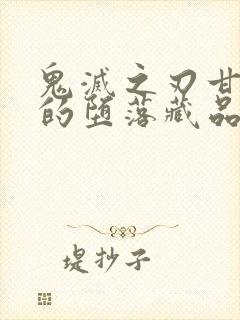 鬼滅之刃甘
的堕落藏品
堤抄子